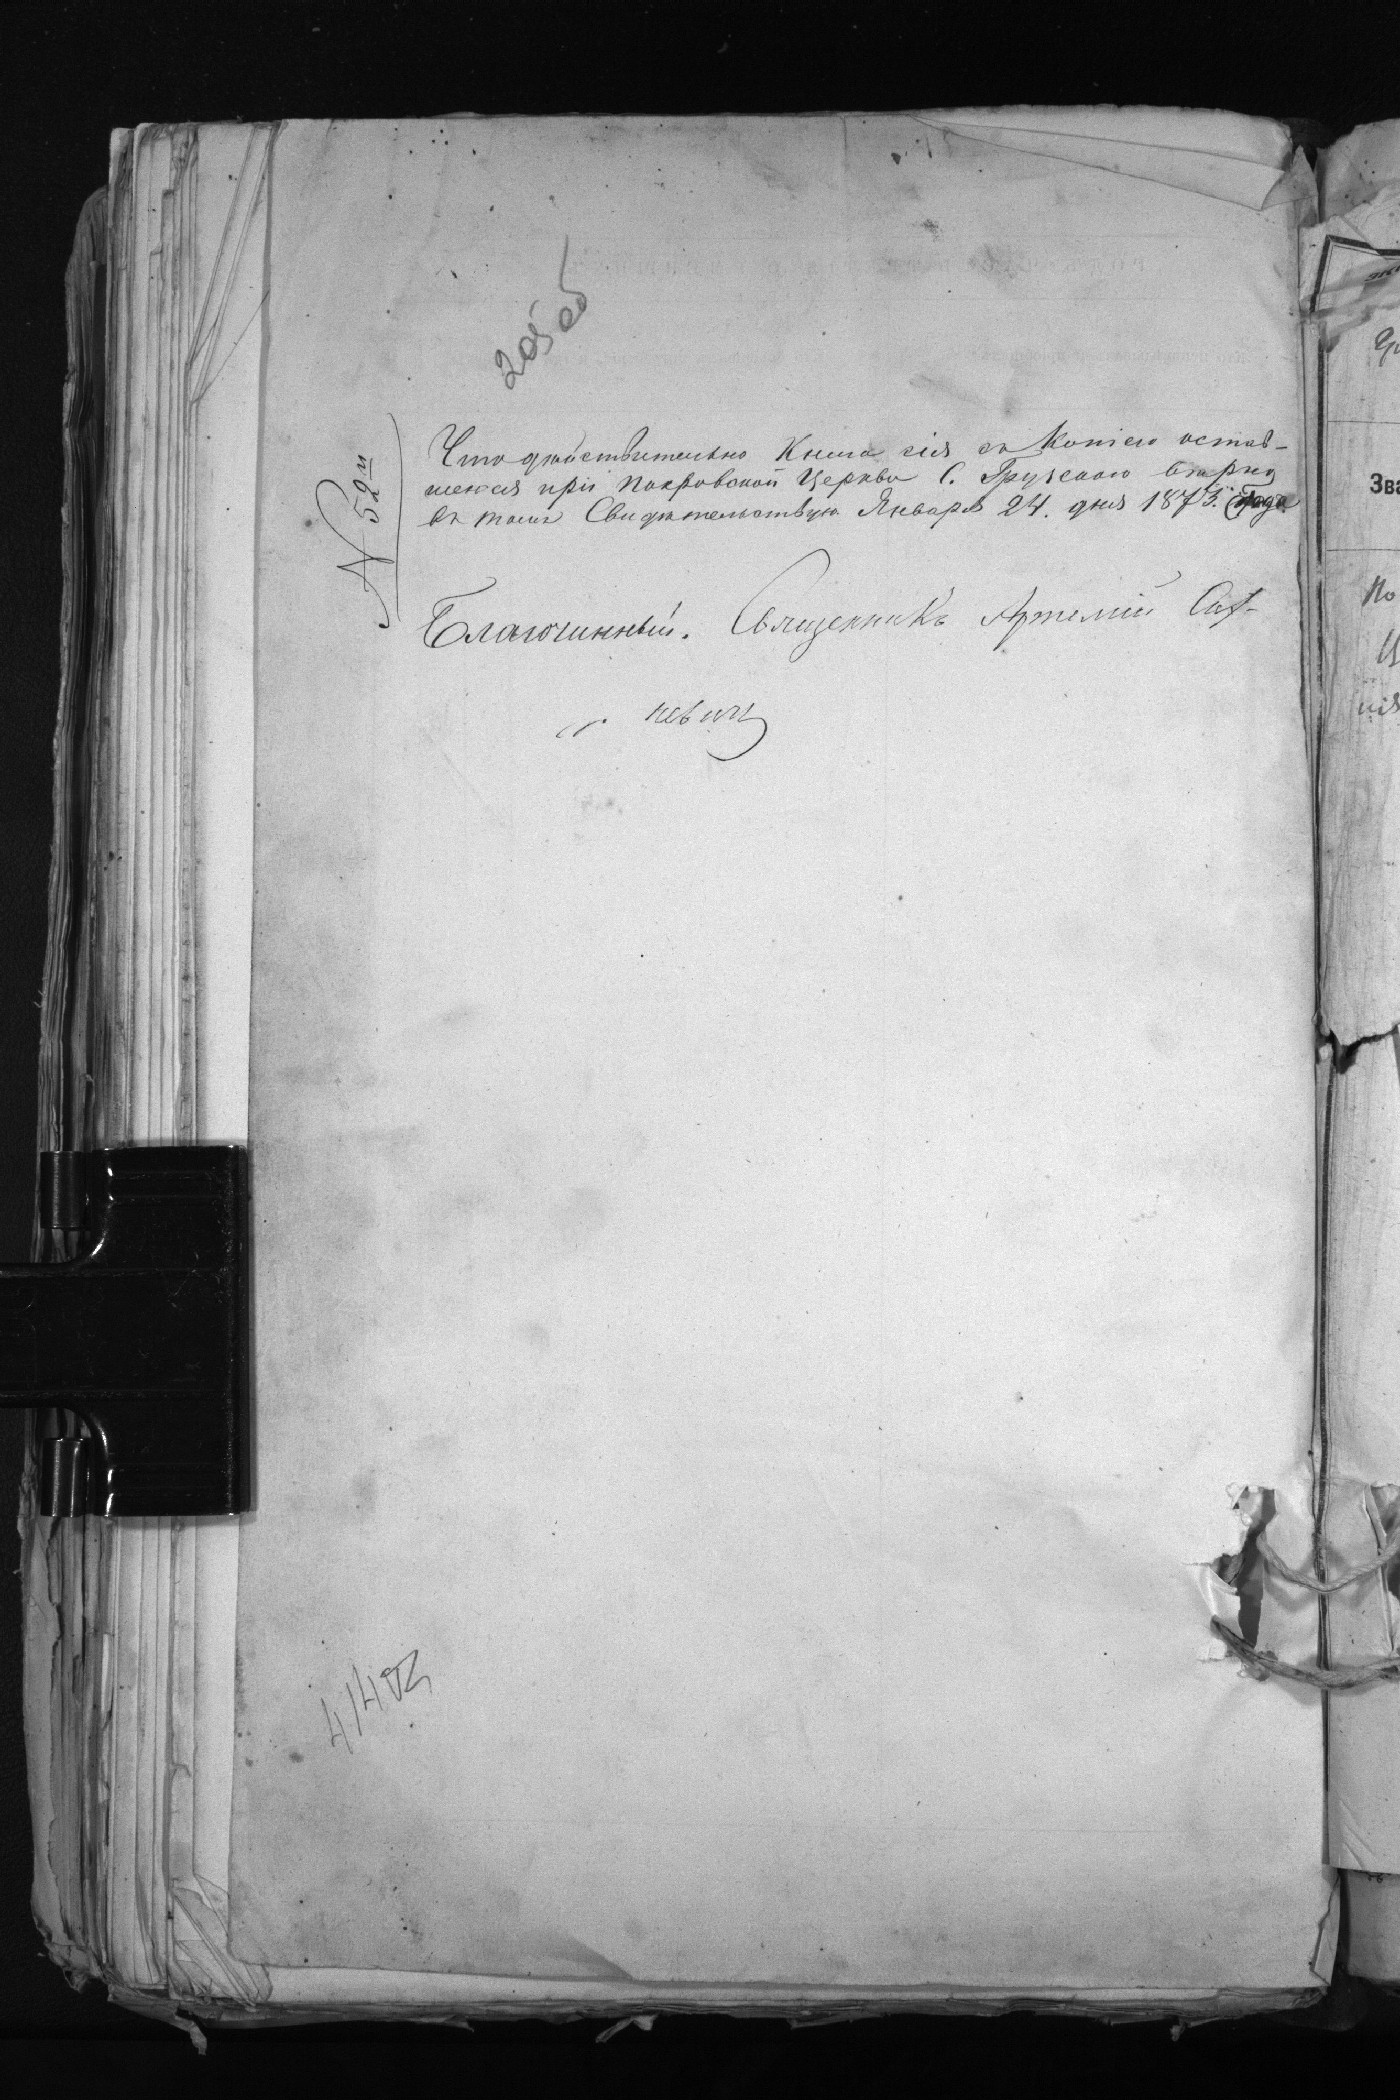 205 об
№ 52й
Что действительно Книга сія съ Копіею остав-
шеюся при Покровской Церкви С. Грузскаго верна
въ томъ Свидѣтельствую Января 24. дня 1873. Года
Благочинный. Священникъ Артемій
невичъ
414
Зва